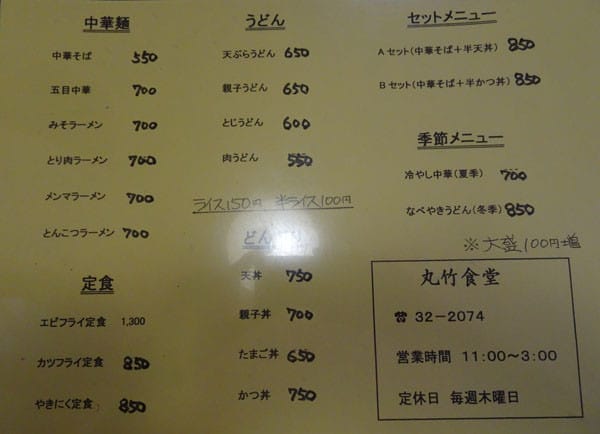 中華麺
中華そば 550
五目中華 700
みそラーメン 700
とり肉ラーメン 700
メンマラーメン 700
とんこつラーメン 700
定食
エビフライ定食 1,300
カツフライ定食 850
やきにく定食 850
うどん
天ぷらうどん 650
親子うどん 650
とじうどん 600
肉うどん 550
ライス150円 半ライス100円
どんぶり
天丼 750
親子丼 700
たまご丼 650
かつ丼 750
セットメニュー
Aセット(中華そば+半天丼) 850
Bセット(中華そば+半かつ丼) 850
季節メニュー
冷やし中華(夏季) 700
なべやきうどん(冬季) 850
※大盛100円増
丸竹食堂
☎ 32-2074
営業時間 11:00~3:00
定休日 毎週木曜日